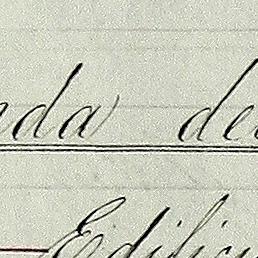 nda de
Edific